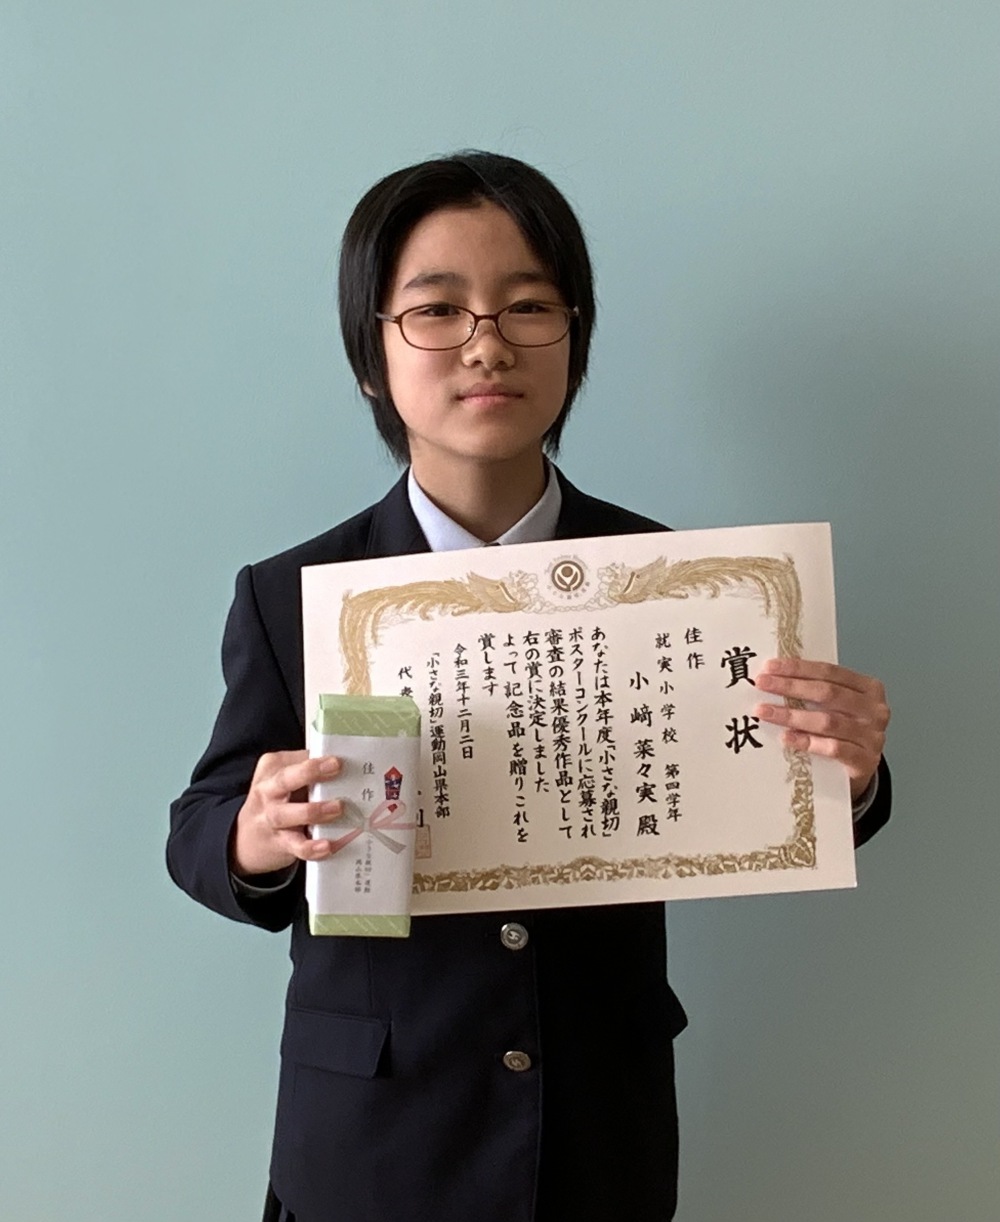 賞状
佳作
就実小学校 第四学年
小﨑菜々実殿
あなたは本年度「小さな親切」
ポスターコンクールに応募され
審査の結果優秀作品として
右の賞に決定しました
よって記念品を贈りこれを
賞します
令和三年十二月二日
「小さな親切」運動岡山県本部
代表
佳作
「小さな親切」運動
岡山県本部